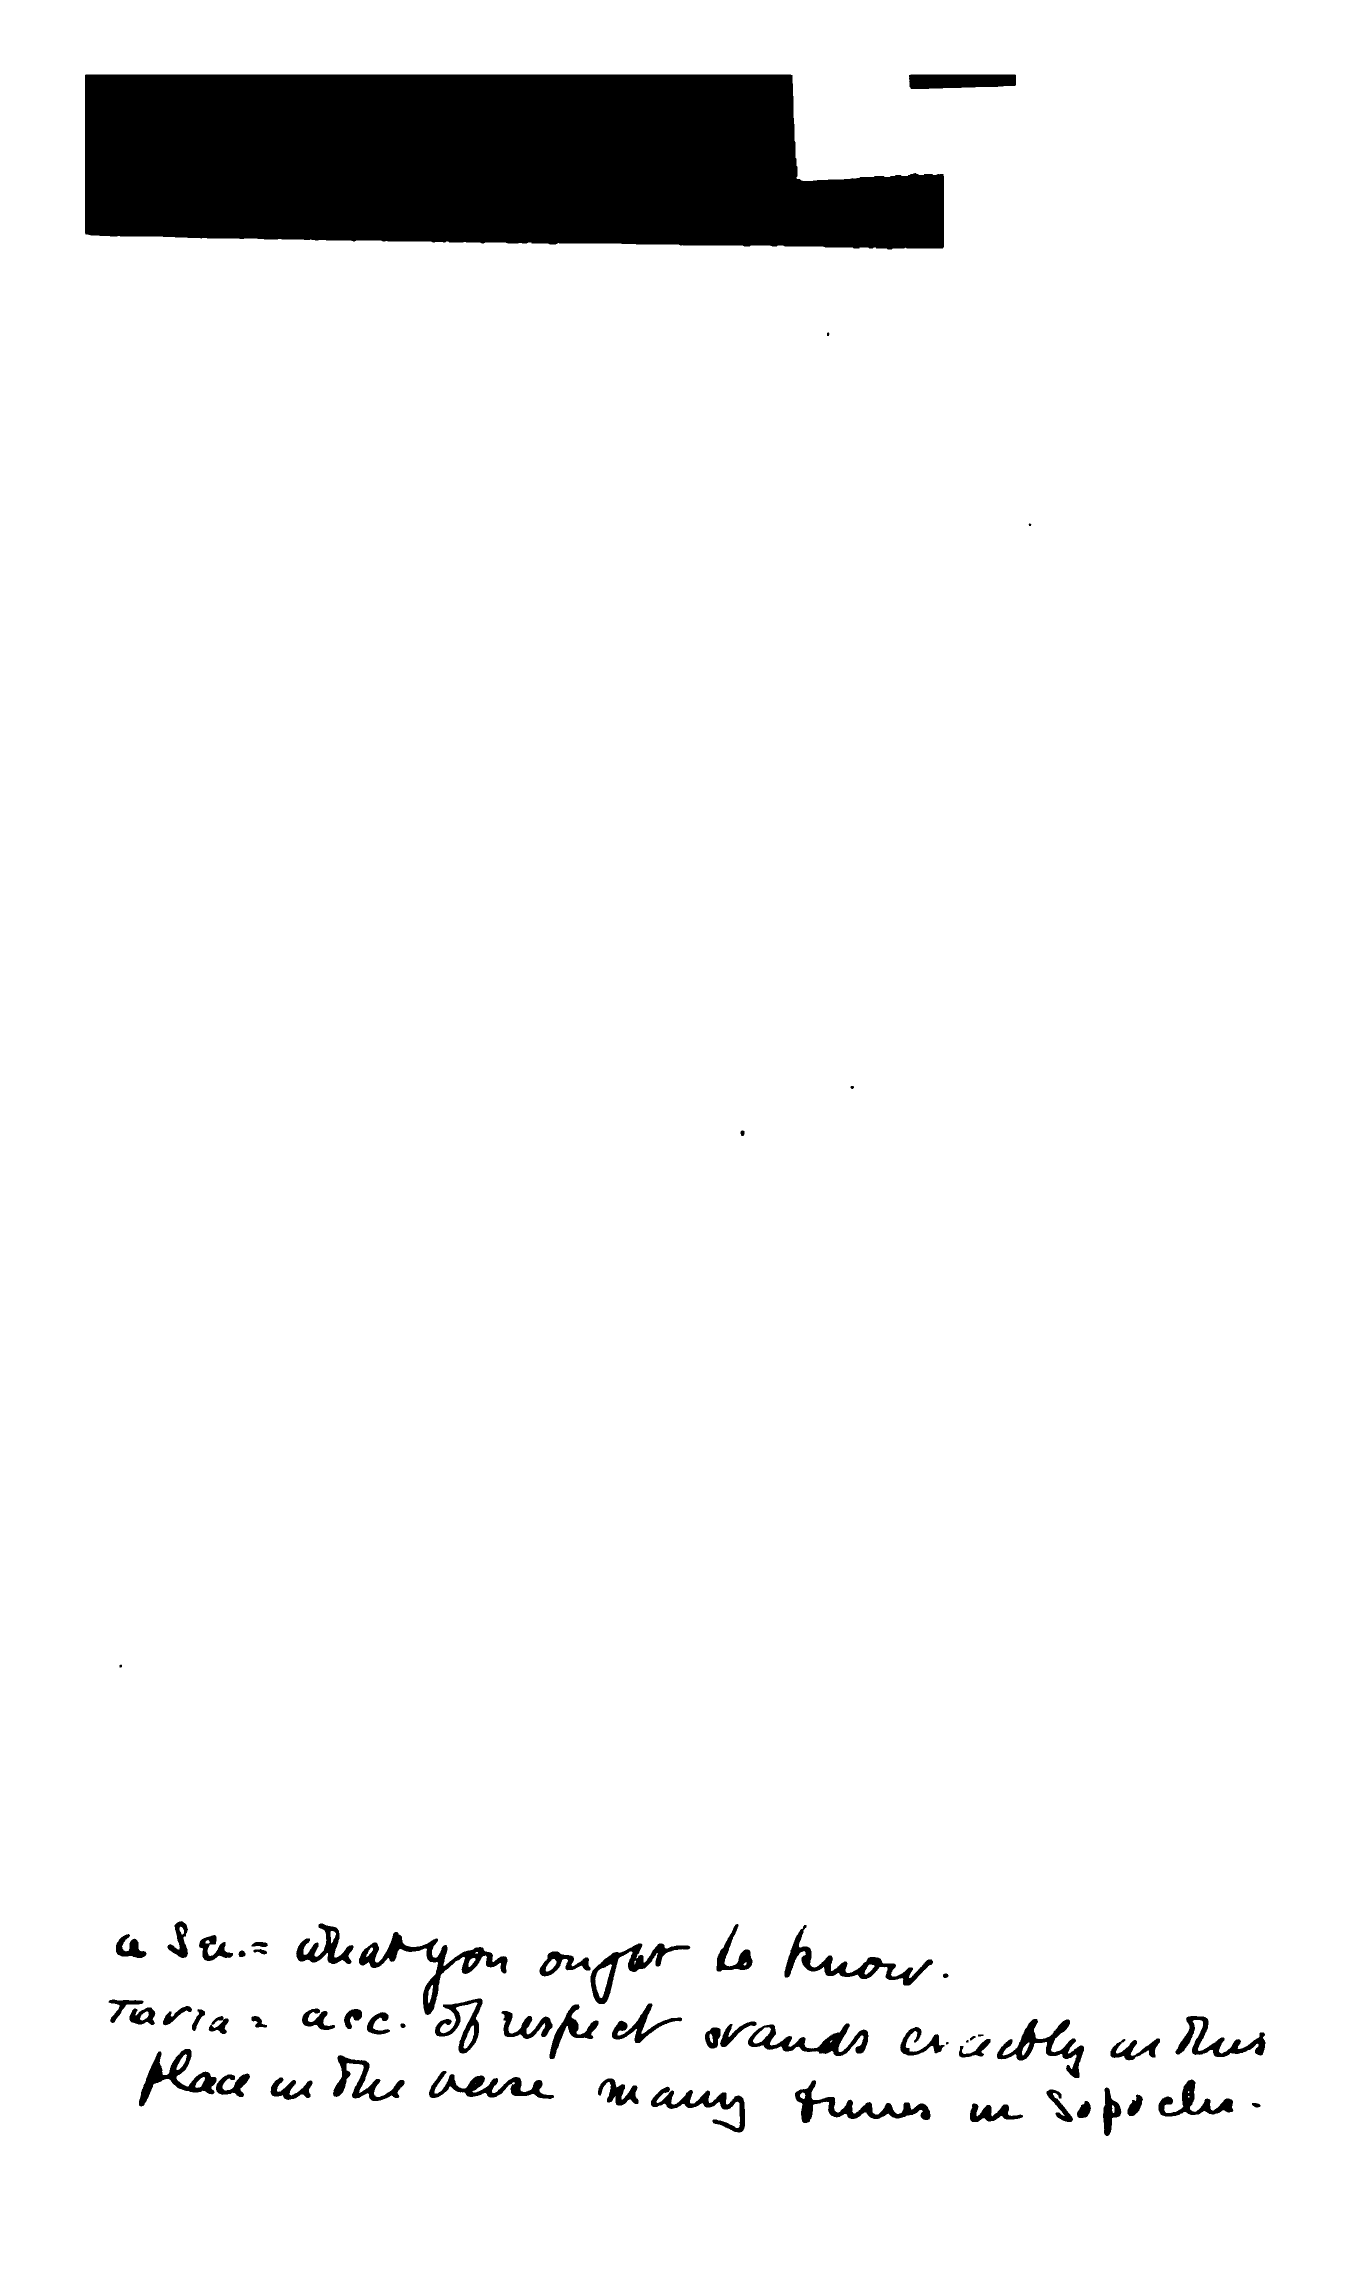 α δει. = what you ought to know.
παντα = acc. of respect stands exactly in this
place in the verse many times in Sopocles.